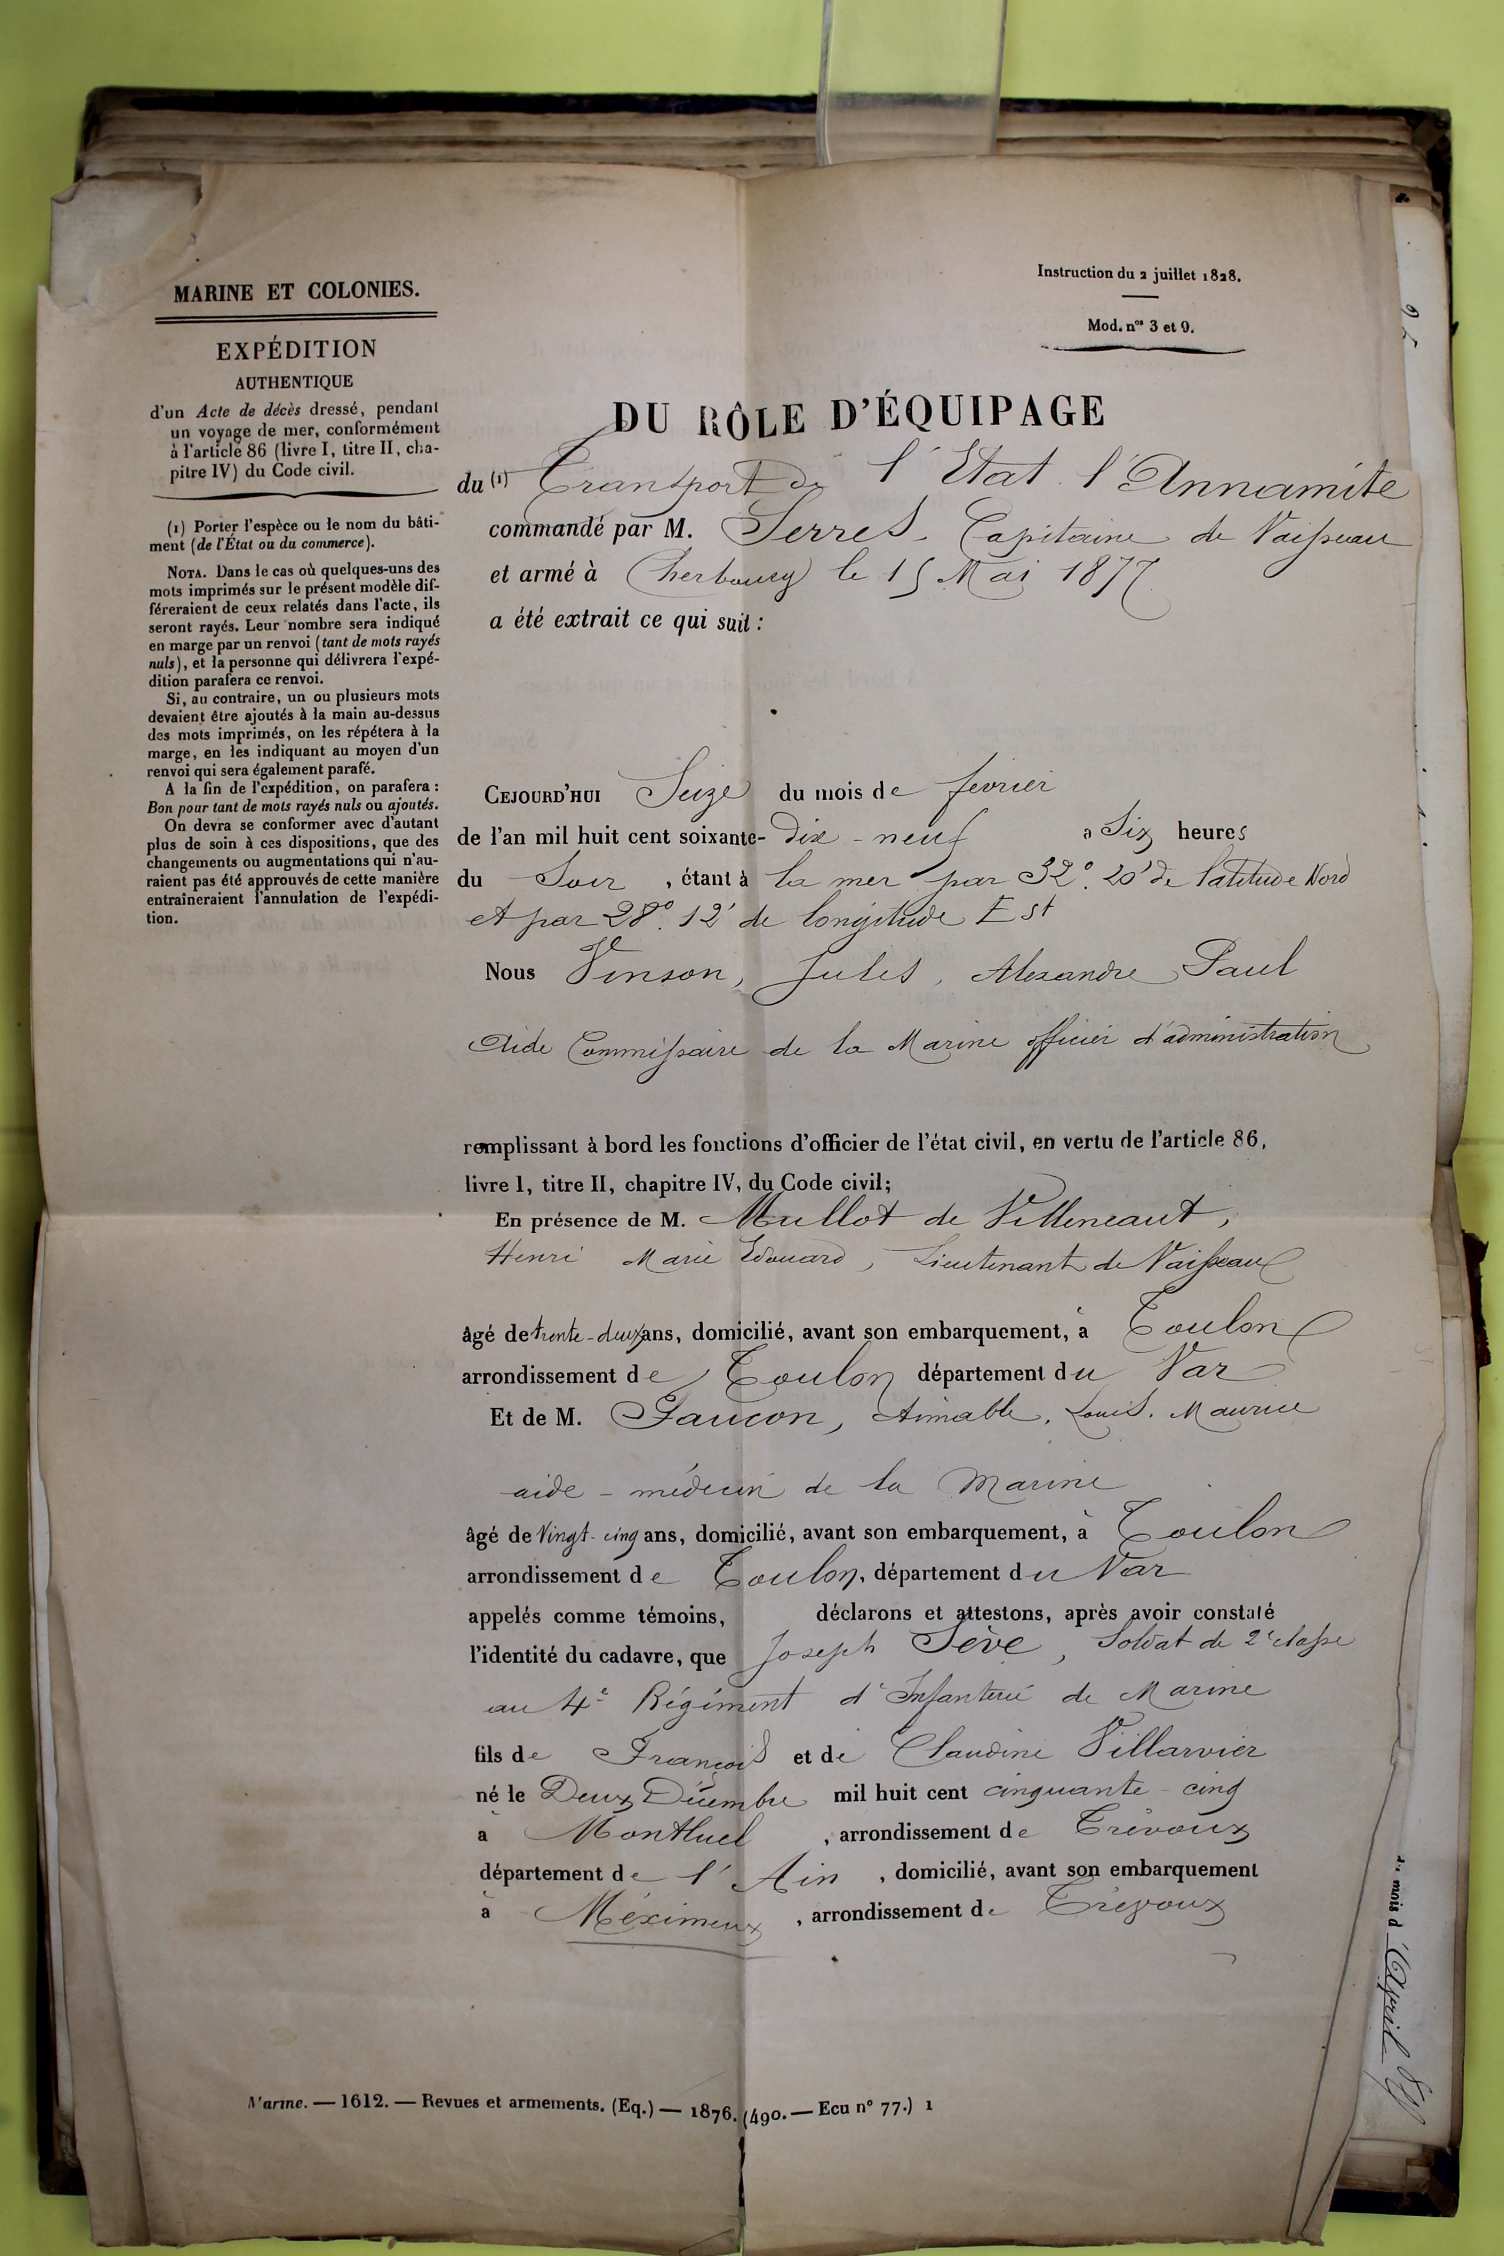 MARINE ET COLONIES.
EXPÉDITION
AUTHENTIQUE
d'un Acte de décès dressé, pendant
un voyage de mer, conformément
à l'article 86 (livre I, titre II, cha-
pitre IV) du Code civil.
(1) Porter l'espèce ou le nom du bâti-
ment (de l'État ou du commerce).
NOTA. Dans le cas où quelques-uns des
mots imprimés sur le présent modèle dif-
féreraient de ceux relatés dans l'acte, ils
seront rayés. Leur nombre sera indiqué
en marge par un renvoi (tant de mots rayés
nuls), et la personne qui délivrera l'expé-
dition parafera ce renvoi.
Si, au contraire, un ou plusieurs mots
devaient être ajoutés à la main au-dessus
des mots imprimés, on les répétera à la
marge, en les indiquant au moyen d'un
renvoi qui sera également parafé.
A la fin de l'expédition, on parafera :
Bon pour tant de mots rayés nuls ou ajoutés.
On devra se conformer avec d'autant
plus de soin à ces dispositions, que des
changements ou augmentations qui n'au-
raient pas été approuvés de cette manière
entraîneraient l'annulation de l'expédi-
tion.
Instruction du 2 juillet 1828.
Mod. nos 3 et 9.
DU RÔLE D'ÉQUIPAGE
du (1) Transport de l'Etat l'Annamite
commandé par M. Serres. Capitaine de Vaisseau
et armé à Cherbourg le 15 Mai 1877.
a été extrait ce qui suit :
CEJOURD'HUI Seize du mois de fevrier
de l'an mil huit cent soixante-dix-neuf a Six heures
du Soir, étant à la mer par 32° 20' de latitude Nord
et par 28° 12' de longitude Est
Nous Vinson, Jules, Alexandre Paul
Aide Commissaire de la Marine officier d'administration
remplissant à bord les fonctions d'officier de l'état civil, en vertu de l'article 86,
livre I, titre II, chapitre IV, du Code civil;
En présence de M. Mullot de Villeneaut,
Henri Marie Edouard, Lieutenant de Vaisseau
âgé de trente-deux ans, domicilié, avant son embarquement, à Toulon
arrondissement de Toulon département du Var
Et de M. Gaucon, Aimable, Louis. Maurice
aide-médecin de la Marine
âgé de Vingt-cinq ans, domicilié, avant son embarquement, à Toulon
arrondissement de Toulon, département du Var
appelés comme témoins, déclarons et attestons, après avoir constaté
l'identité du cadavre, que Joseph Sève, Soldat de 2e classe
au 4e Régiment d'Infanterie de Marine
fils de François et de Claudine Villarvier
né le Deux Décembre mil huit cent cinquante-cinq
à Montluel, arrondissement de Trévoux
département de l'Ain, domicilié, avant son embarquement
à Méximieux, arrondissement de Trévoux
Marine. — 1612. — Revues et armements. (Eq.) — 1876. (490. — Ecu n° 77.) 1
mois d'Avril